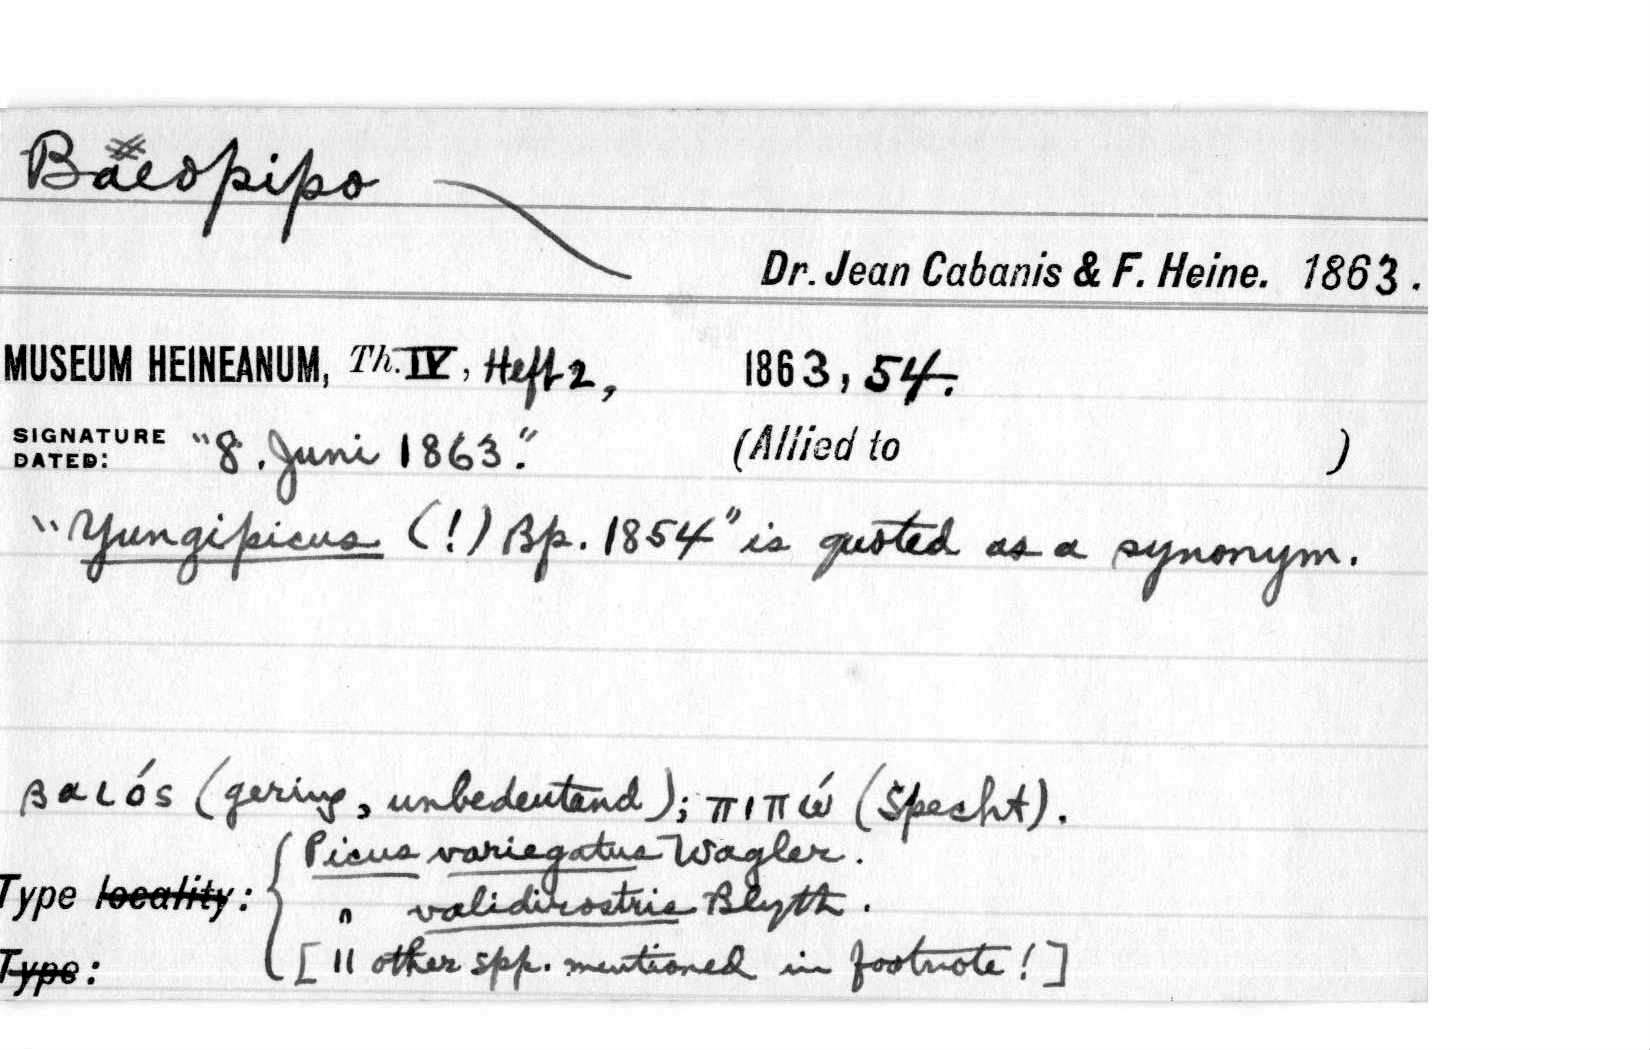 Baeopipo
Dr. Jean Cabanis & F. Heine. 1863.
MUSEUM HEINEANUM, Th. IV, Heft 2, 1863, 54.
SIGNATURE DATED: "8. Juni 1863." (Allied to )
"Yungipicus (!) Bp. 1854" is quoted as a synonym.
βαιός (gering, unbedeutend); πιπώ (Specht).
Picus variegatus Wagler.
Type locality: " validirostris Blyth.
Type: [11 other spp. mentioned in footnote!]